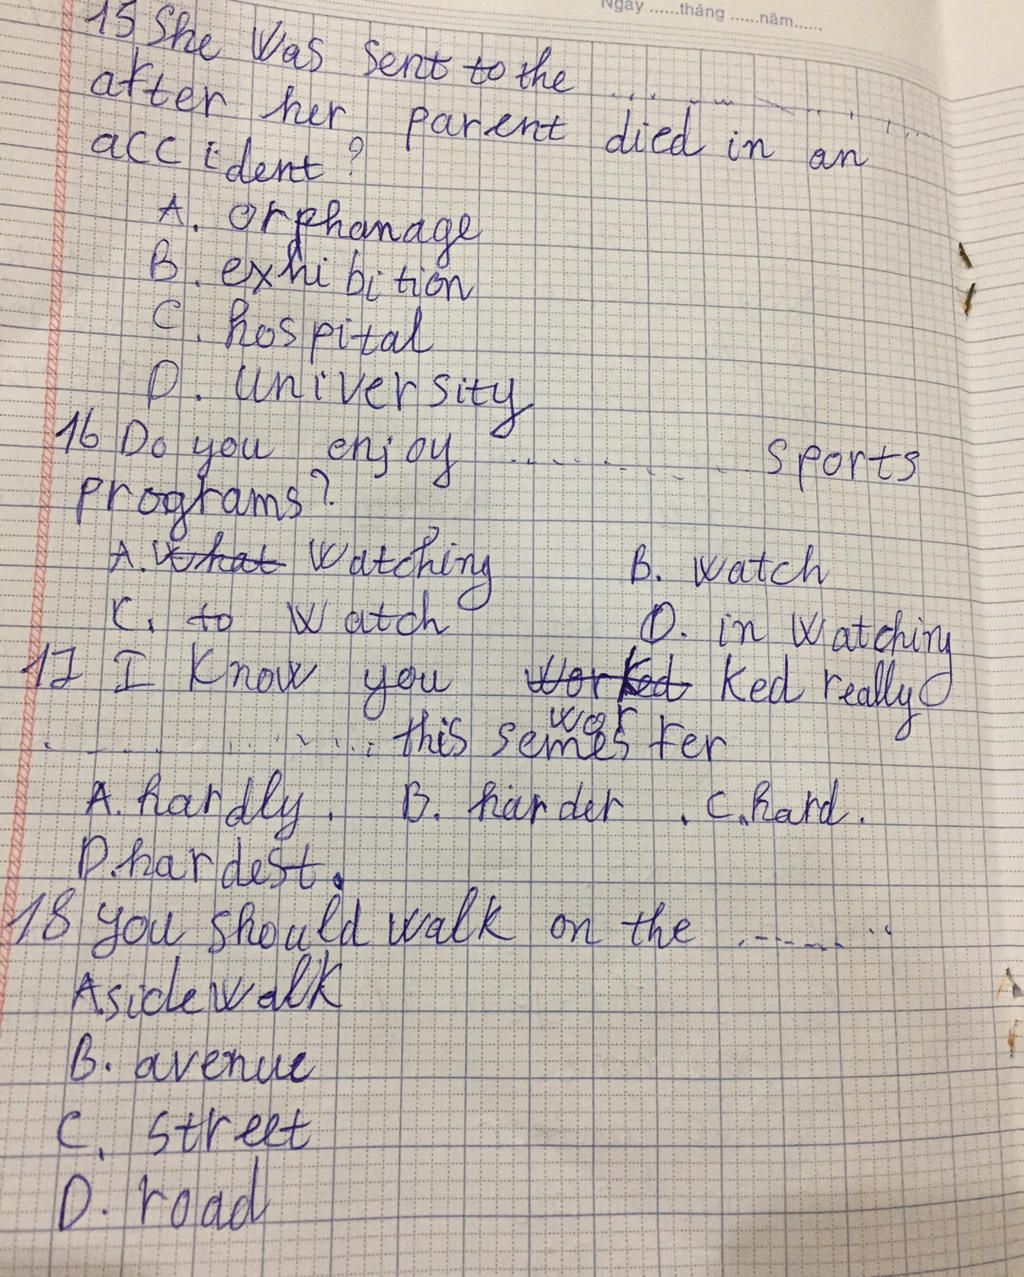 Ngày ......tháng ......năm......
15 She was sent to the ............
after her parent died in an
accident?
A. orphanage
B. exhibition
C. hospital
D. university
16 Do you enjoy ............ sports
programs?
A. what watching B. watch
C. to watch D. in watching
17 I know you worked ked really
wor
............ this semester
A. hardly. B. harder . C. hard.
D. hardest.
18 you should walk on the .........
A sidewalk
B. avenue
C. street
D. road